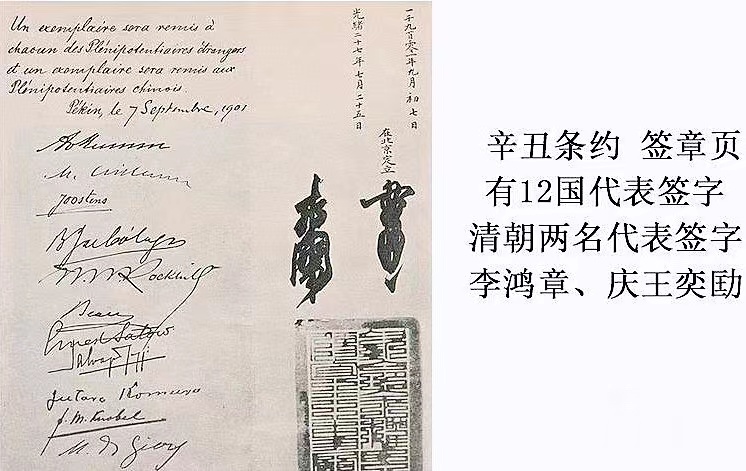 Un exemplaire sera remis à
chacun des Plénipotentiaires étrangers
et un exemplaire sera remis aux
Plénipotentiaires chinois.
Pékin, le 7 Septembre, 1901
Joostens
Rockhill
Beau
Ernest Satow
Jutaro Komura
F. M. Knobel
M. de Giers
一千九百零一年九月初七日
光緒二十七年七月二十五日
在北京定立
辛丑条约 签章页
有12国代表签字
清朝两名代表签字
李鸿章、庆王奕劻